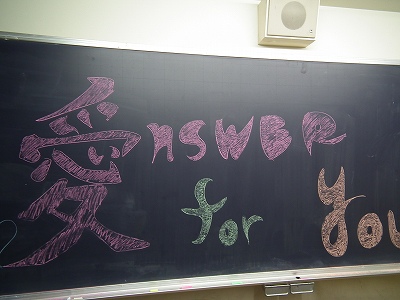 愛nsweR
for You